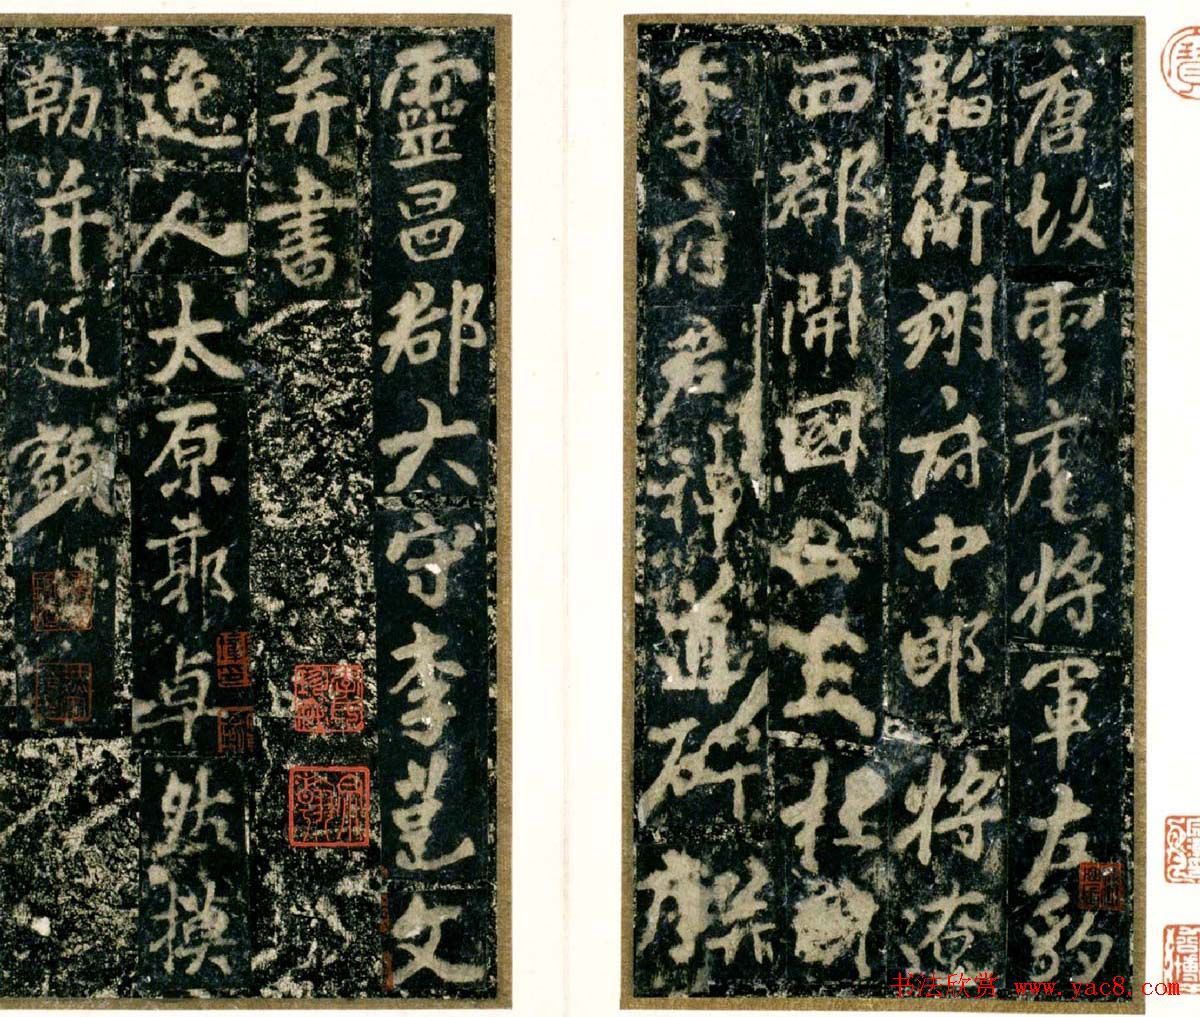 唐故雲麾將軍左豹
韜衛翊府中郎將遼
西郡開國公上柱國
李府君神道碑并序
靈昌郡太守李邕文
并書
逸人太原郭卓然摸
勒并題額
书法欣赏 www.yac8.com